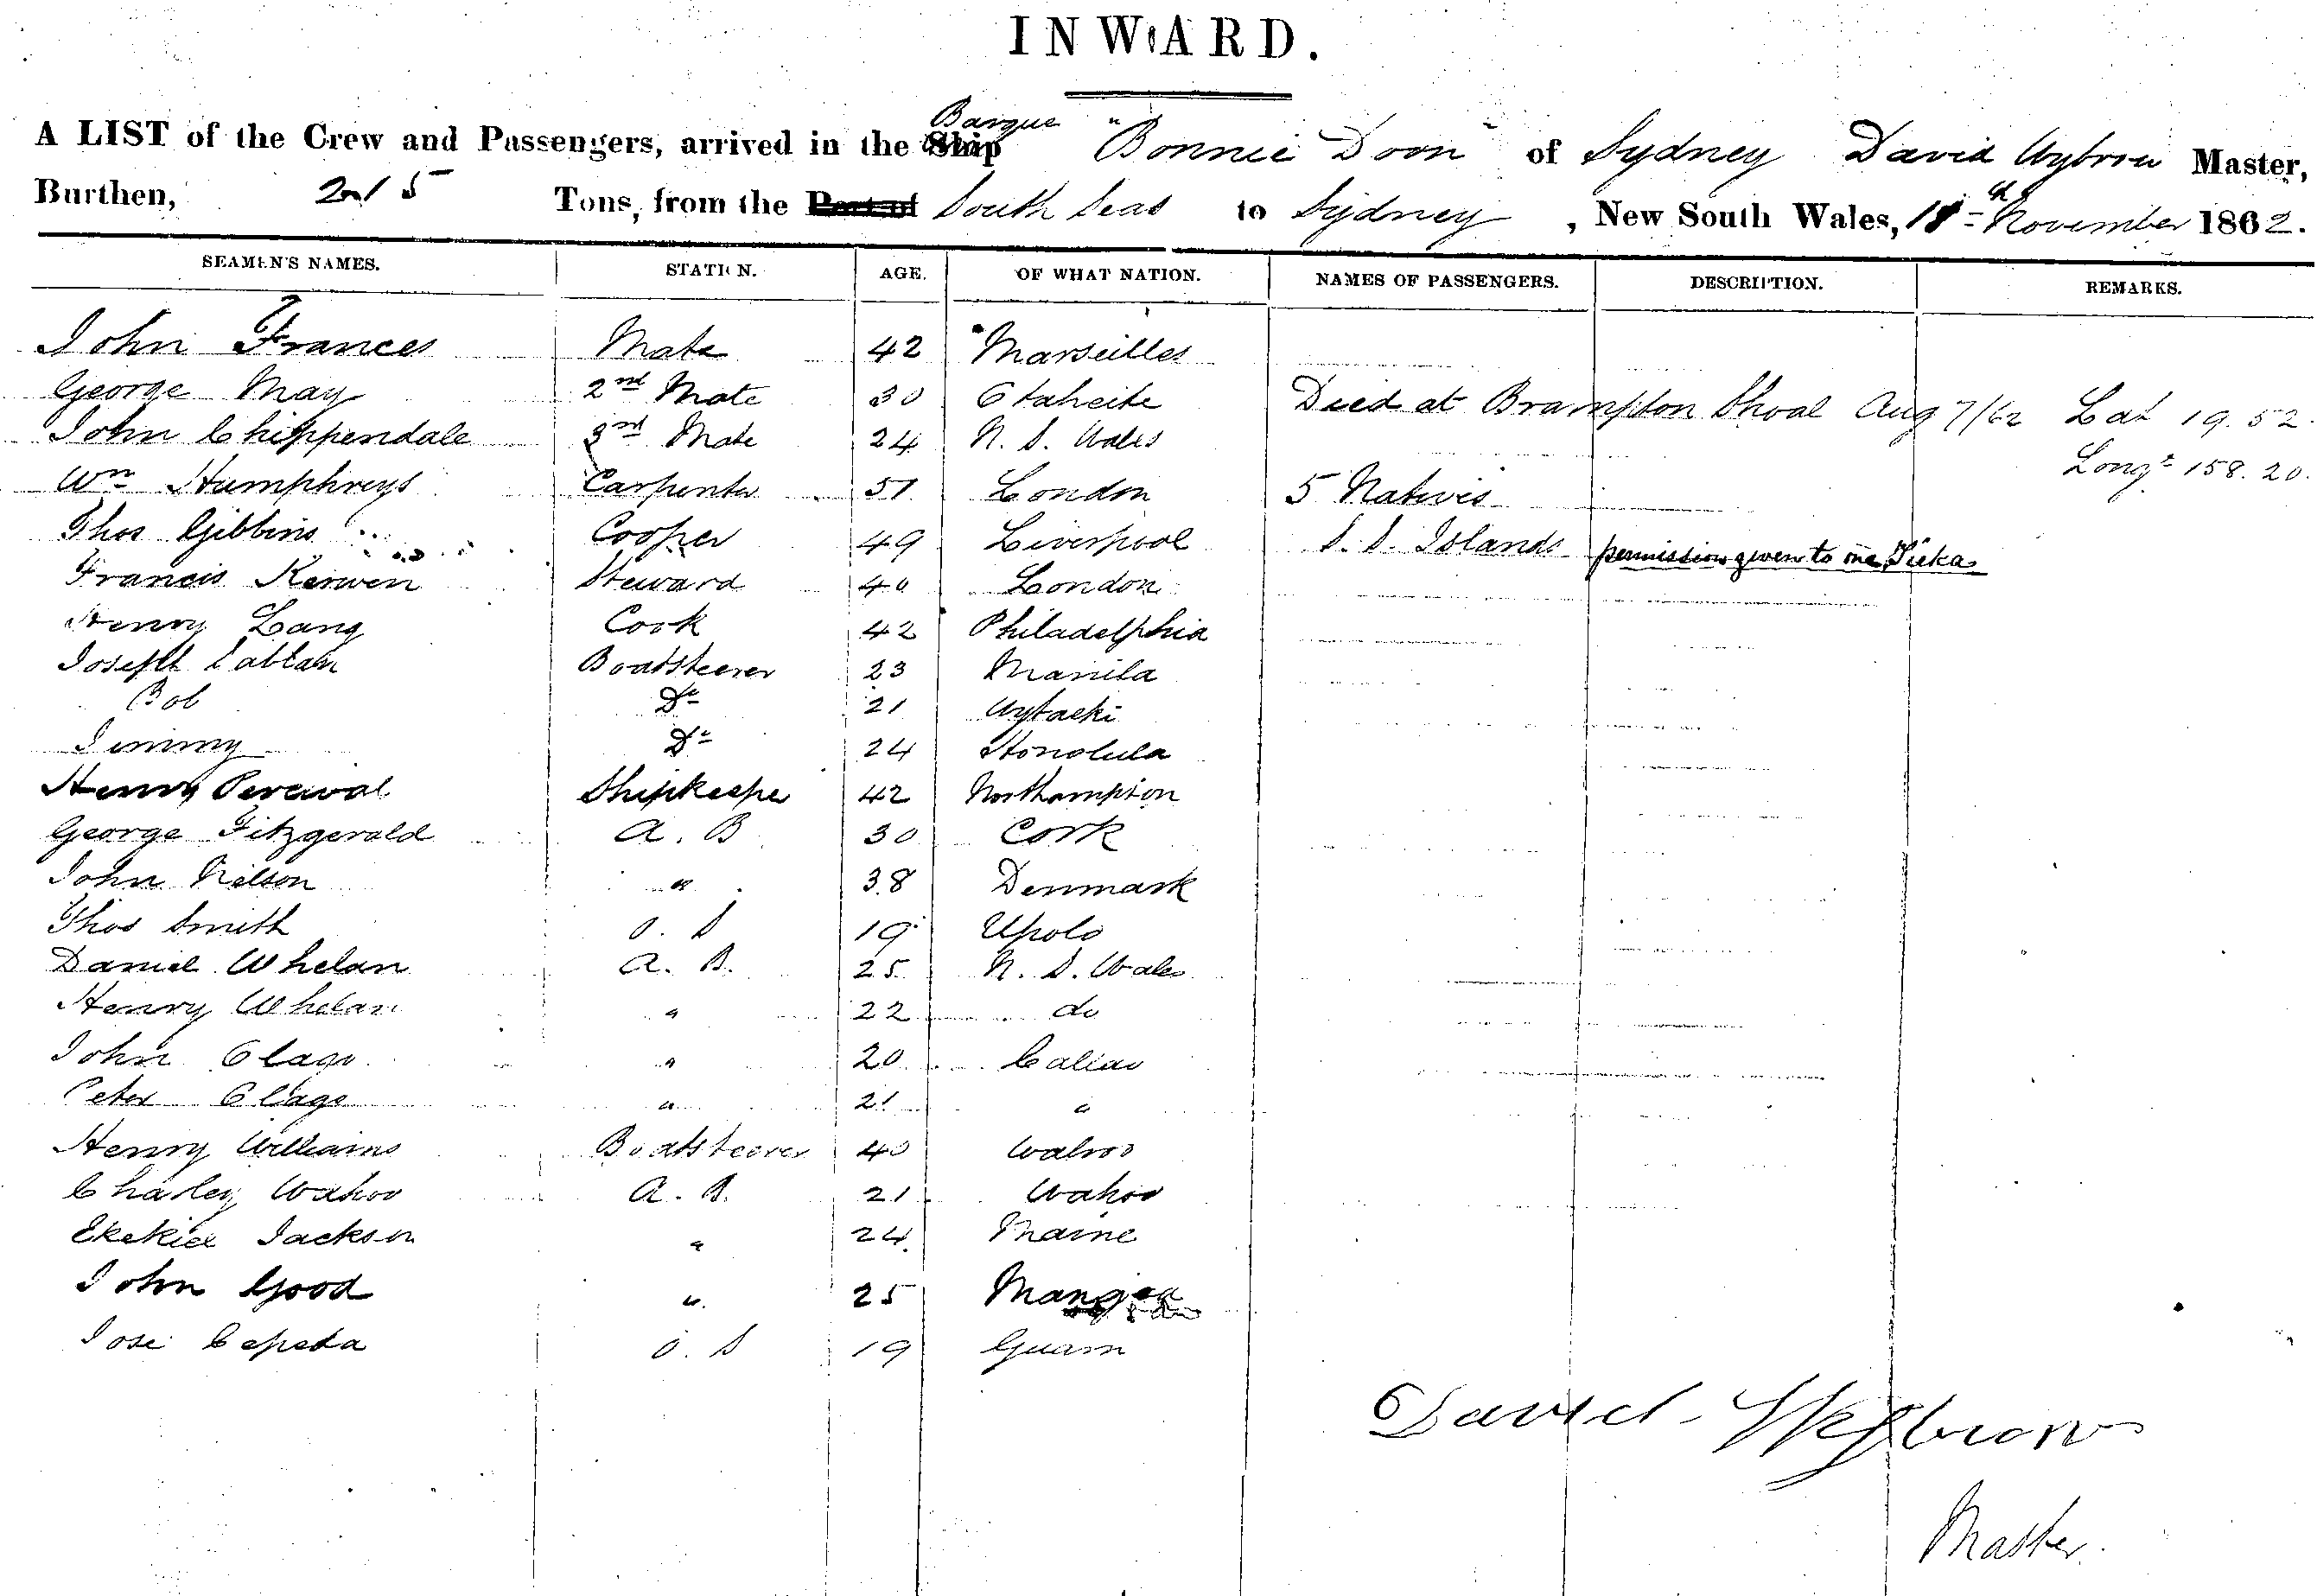 INWARD.
Barque
A LIST of the Crew and Passengers, arrived in the Ship "Bonnie Doon" of Sydney David Wybrow Master,
Burthen, 215 Tons, from the Port of South Seas to Sydney, New South Wales, 18th November 1862.
SEAMEN'S NAMES. STATION. AGE. OF WHAT NATION. NAMES OF PASSENGERS. DESCRIPTION. REMARKS.
John Frances Mate 42 Marseilles
George May 2nd Mate 30 Otaheite Died at Brampton Shoal Aug 7/62 Lat 19.52.
John Chippendale 3rd Mate 24 N. S. Wales
Longe 158.20.
Wm Humphreys Carpenter 51 London 5 Natives
Thos Gibbins Cooper 49 Liverpool S. S. Islands permission given to me
Francis Kerwen Steward 40 London
Henry Lang Cook 42 Philadelphia
Joseph Boatsteerer 23 Manila
Bob Do 21 Wytacki
Jimmy Do 24 Honolula
Henry Percival Shipkeeper 42 Northampton
George Fitzgerald A. B 30 Cork
John Nilson " 38 Denmark
Thos Smith O. S 19 Upolo
Daniel Whelan A. B. 25 N. S. Wales
Henry Whelan " 22 do
John Olago " 20 Callao
Peter Olago " 21 "
Henry Williams Boatsteerer 40 Wahoo
Charley Wahoo A. B. 21 Wahoo
Ekekiel Jackson " 24 Maine
John Good " 25 Mangea
Jose Cepeda O. S 19 Guam
David Wybrow
Master.